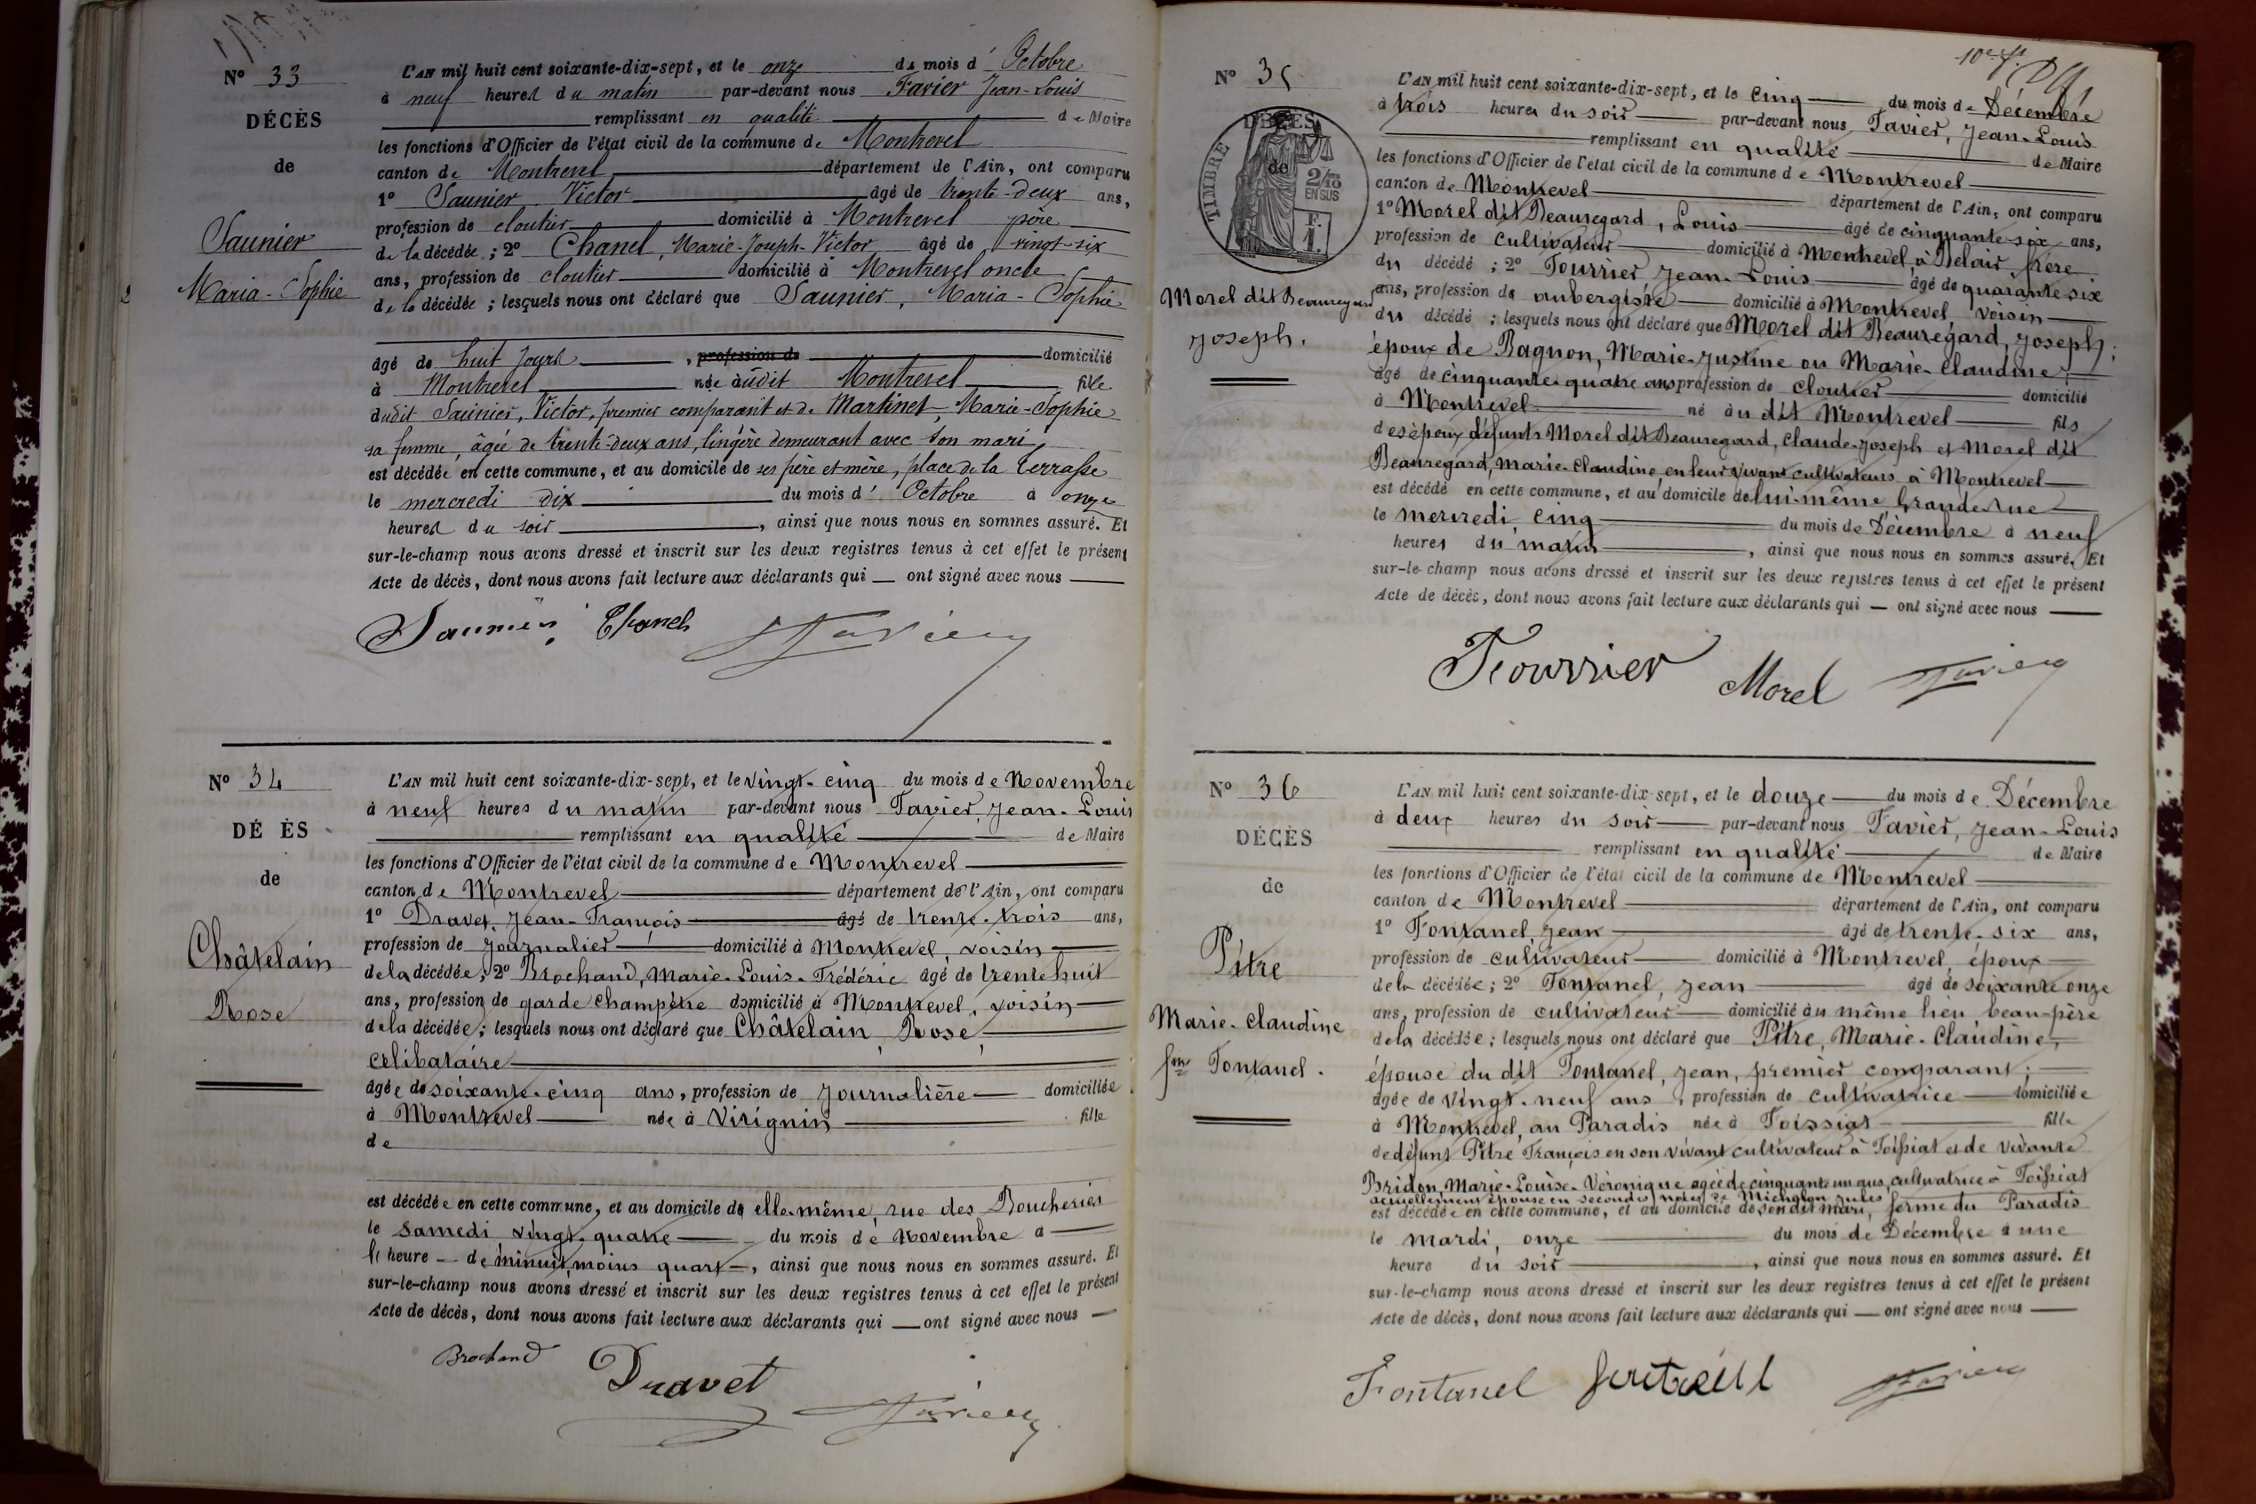 N° 33
DÉCÈS
de
Saunier
Maria-Sophie
L'AN mil huit cent soixante-dix-sept, et le onze du mois d' Octobre
à neuf heures du matin par-devant nous Favier Jean-Louis
remplissant en qualité de Maire
les fonctions d'Officier de l'état civil de la commune de Montrevel
canton de Montrevel département de l'Ain, ont comparu
1° Saunier Victor âgé de trente-deux ans,
profession de cloutier domicilié à Montrevel père
de la décédée ; 2° Chanel, Marie-Joseph-Victor âgé de vingt-six
ans, profession de cloutier domicilié à Montrevel oncle
de la décédée ; lesquels nous ont déclaré que Saunier, Maria-Sophie
âgé de huit jours , profession de domicilié
à Montrevel née audit Montrevel fille
dudit Saunier, Victor, premier comparant et de Martinet, Marie-Sophie
sa femme, âgée de trente-deux ans, lingère demeurant avec son mari,
est décédée en cette commune, et au domicile de ses père et mère, place de la Terrasse
le mercredi dix du mois d' Octobre à onze
heures du soir , ainsi que nous nous en sommes assuré. Et
sur-le-champ nous avons dressé et inscrit sur les deux registres tenus à cet effet le présent
Acte de décès, dont nous avons fait lecture aux déclarants qui ont signé avec nous
Saunier Chanel Favier
N° 34
DÉ ÈS
de
Châtelain
Rose
L'AN mil huit cent soixante-dix-sept, et le vingt-cinq du mois de Novembre
à neuf heures du matin par-devant nous Favier, Jean-Louis
remplissant en qualité de Maire
les fonctions d'Officier de l'état civil de la commune de Montrevel
canton de Montrevel département de l'Ain, ont comparu
1° Dravet, Jean-François âgé de trente-trois ans,
profession de journalier domicilié à Montrevel, voisin
de la décédée ; 2° Brochand, Marie-Louis-Frédéric âgé de trente huit
ans, profession de garde champêtre domicilié à Montrevel, voisin
de la décédée ; lesquels nous ont déclaré que Châtelain, Rose,
celibataire
âgée de soixante-cinq ans, profession de journalière domiciliée
à Montrevel née à Virignin fille
de
est décédée en cette commune, et au domicile de elle-même, rue des Boucheries
le samedi vingt-quatre du mois de Novembre à
l' heure de minuit moins quart , ainsi que nous nous en sommes assuré. Et
sur-le-champ nous avons dressé et inscrit sur les deux registres tenus à cet effet le présent
Acte de décès, dont nous avons fait lecture aux déclarants qui ont signé avec nous
Brochand Dravet Favier
N° 35
DÉCÈS
de
TIMBRE
2/10
EN SUS
Morel dit Beauregard
Joseph.
L'AN mil huit cent soixante-dix-sept, et le cinq du mois de Décembre
à trois heures du soir par-devant nous Favier, Jean-Louis
remplissant en qualité de Maire
les fonctions d'Officier de l'état civil de la commune de Montrevel
canton de Montrevel département de l'Ain, ont comparu
1° Morel dit Beauregard, Louis âgé de cinquante-six ans,
profession de cultivateur domicilié à Montrevel à Belair frère
du décédé ; 2° Fourrier Jean-Louis âgé de quarante-six
ans, profession de aubergiste domicilié à Montrevel voisin
du décédé ; lesquels nous ont déclaré que Morel dit Beauregard, Joseph,
époux de Bagnon, Marie-Justine ou Marie-Claudine,
âgé de cinquante-quatre ans profession de cloutier domicilié
à Montrevel né au dit Montrevel fils
des époux défunts Morel dit Beauregard, Claude-Joseph et Morel dit
Beauregard, Marie-Claudine, en leur vivant cultivateurs à Montrevel
est décédé en cette commune, et au domicile de lui-même, Grande Rue
le mercredi, cinq du mois de Décembre à neuf
heures du matin , ainsi que nous nous en sommes assuré. Et
sur-le-champ nous avons dressé et inscrit sur les deux registres tenus à cet effet le présent
Acte de décès, dont nous avons fait lecture aux déclarants qui ont signé avec nous
Fourrier Morel Favier
N° 36
DÉCÈS
de
Pitre
Marie-Claudine
fme Fontanel.
L'AN mil huit cent soixante-dix-sept, et le douze du mois de Décembre
à deux heures du soir par-devant nous Favier, Jean-Louis
remplissant en qualité de Maire
les fonctions d'Officier de l'état civil de la commune de Montrevel
canton de Montrevel département de l'Ain, ont comparu
1° Fontanel, Jean âgé de trente-six ans,
profession de cultivateur domicilié à Montrevel, époux
de la décédée ; 2° Fontanel, Jean âgé de soixante onze
ans, profession de cultivateur domicilié au même lieu beau-père
de la décédée ; lesquels nous ont déclaré que Pitre, Marie-Claudine,
épouse du dit Fontanel, Jean, premier comparant ;
âgée de vingt-neuf ans , profession de cultivatrice domiciliée
à Montrevel, au Paradis née à Foissiat fille
de défunt Pitre François en son vivant cultivateur à Foissiat et de vivante
Bridon, Marie-Louise-Véronique agée de cinquante un ans, cultivatrice à Foissiat
actuellement épouse en secondes noces de
est décédée en cette commune, et au domicile de son dit mari, ferme du Paradis
le mardi, onze du mois de Décembre à une
heure du soir , ainsi que nous nous en sommes assuré. Et
sur-le-champ nous avons dressé et inscrit sur les deux registres tenus à cet effet le présent
Acte de décès, dont nous avons fait lecture aux déclarants qui ont signé avec nous
Fontanel Favier